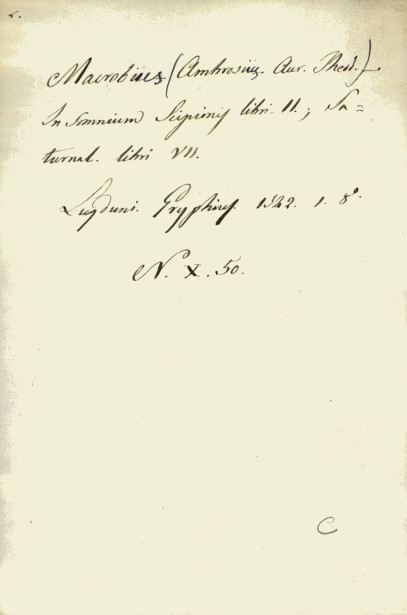 2.
Macrobius (Ambrosius. Aur. Theod.)
In Somnium Scipionis libri II.; Sa=
turnal. libri VII.
Lugduni. Gryphius. 1542. 1. 8°.
N. X. 50.
C